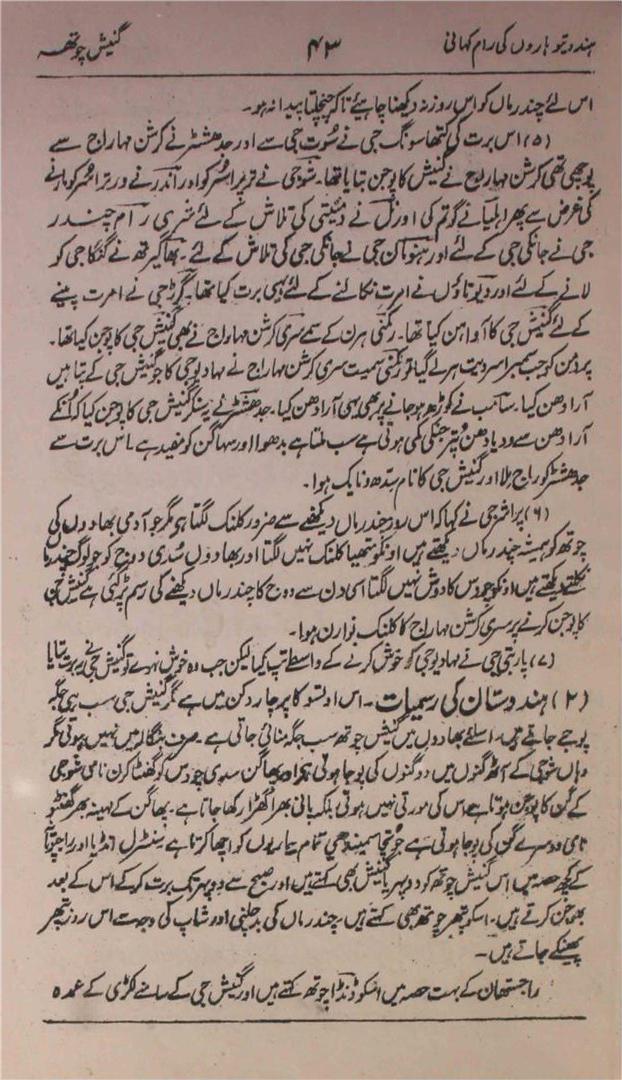 ہندو تیوہاروں کی رام کہانی ۴۳ گنیش چوتھ
اس لئے چندرماں کو اس روز نہ دیکھنا چاہیئے تاکہ چنچلتا پیدا نہ ہو۔
(۵) اس برت کی کتھا سونگ جی نے سُوت جی سے اور جدھشٹر نے کرشن مہاراج سے
پوچھی تھی کرشن مہاراج نے گنیش کا پوجن بتایا تھا۔ شوجی نے تریپراسُر کو اور اندر نے ورتراسُر کو مارنے
کی غرض سے پھر اہلیا نے گوتم کی اور نل نے دمینتی کی تلاش کے لئے شری رام چندر
جی نے جانکی جی کے لئے اور ہنومان جی نے جانکی جی کی تلاش کے لئے۔ بھاگیرتھ نے گنگا جی کو
لانے کے لئے اور دیوتاؤں نے امرت نکالنے کے لئے یہی برت کیا تھا۔ گرڑ جی نے امرت پینے
کے لئے گنیش جی کا آواہن کیا تھا۔ رکمنی ہرن کے سمے سری کرشن مہاراج نے بھی گنیش جی کا پوجن کیا تھا۔
پردمن کو جب سمبر اسر دیت ہر لے گیا تو رکمنی سمیت سری کرشن مہاراج نے مہادیو جی کا جو گنیش جی کے پتا ہیں
آرادھن کیا۔ سانب نے کوڑھ ہو جانے پر بھی یہی آرادھن کیا۔ جدھشٹر نے یہ سنکر گنیش جی کا پوجن کیا کہ اُنکے
آرادھن سے ودیا دھن پُتر جنکی کمی ہوتی ہے سب ملتا ہے بدھوا اور سہاگن کو مفید ہے۔ اس برت سے
جدھشٹر کو راج ملا اور گنیش جی کا نام سِدھ ونایک ہوا۔
(۶) پراشر جی نے کہا کہ اس روز چندرماں دیکھنے سے ضرور کلنک لگتا ہے مگر جو آدمی بھادوں کی
چوتھ کو ہمیشہ چندرماں دیکھتے ہیں اونکو متھیا کلنک نہیں لگتا اور بھادوں سُدی دوج کو جو لوگ چندرماں
نکلتے دیکھتے ہیں اونکو چودس کا دوش نہیں لگتا اسی دن سے دوج کا چندرماں دیکھنے کی رسم پڑ گئی ہے گنیش جی
کا پوجن کرنے پر سری کرشن مہاراج کا کلنک نوارن ہوا۔
(۷) پاربتی جی نے مہادیو جی کو خوش کرنے کے واسطے تپ کیا لیکن جب وہ خوش نہوے تو گنیش جی نے یہ برت بتایا
(۲) ہندوستان کی رسمیات۔ اس اوتسو کا پرچار دکن میں ہے مگر گنیش جی سب ہی جگہ
پوجے جاتے ہیں۔ اسلئے بھادوں میں گنیش چوتھ سب جگہ منائی جاتی ہے۔ صرف بنگالہ میں نہیں ہوتی مگر
وہاں شوجی کے آٹھ گنوں میں دو گنوں کی پوجا ہوتی ہے۔ اور پھاگن سدی چودس کو گھنٹا کرن نامی شوجی
کے گن کا پوجن ہوتا ہے اس کی مورتی نہیں ہوتی بلکہ پانی بھرا گھڑا رکھا جاتا ہے۔ پھاگن کے مہینہ پھر گھنٹو
نامی دوسرے گن کی پوجا ہوتی ہے جو تمام بیماریوں کو اچھا کرتا ہے سنٹرل انڈیا اور راجپوتانہ
کے کچھ حصہ میں اس گنیش چوتھ کو دوپہریا گنیش بھی کہتے ہیں اور صبح سے دوپہر تک برت کرکے اس کے بعد
بھوجن کرتے ہیں۔ اسکو پتھر چوتھ بھی کہتے ہیں۔ چندرماں کی بد چلنی اور شاپ کی وجہ سے اس روز پتھر
پھینکے جاتے ہیں۔
راجستھان کے بہت حصہ میں اسکو ڈنڈا چوتھ کہتے ہیں اور گنیش جی کے سامنے لکڑی کے عمدہ